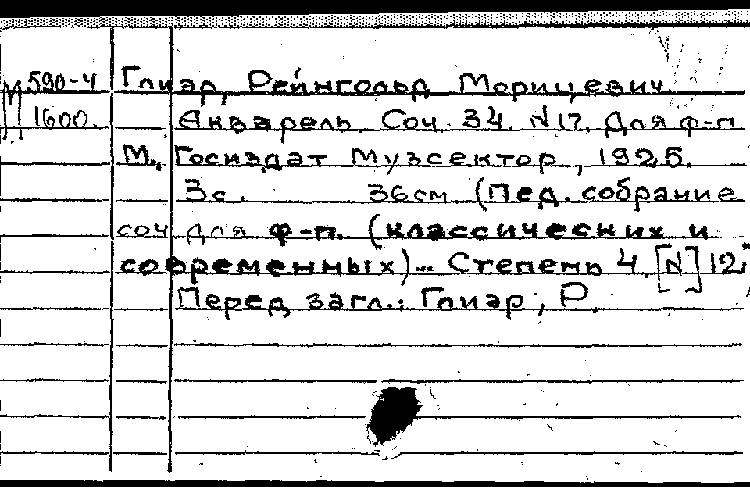 М 590-4 Глиэр, Рейнгольд Морицевич
1600. Акварель Соч. 34. N 17. Для ф-п
М., Госиздат Музсектор, 1925.
3с. 36см (Пед. собрание
соч для ф-п. (классических и
современных)... Степень 4. [N] 12.
Перед загл.: Глиэр, Р.